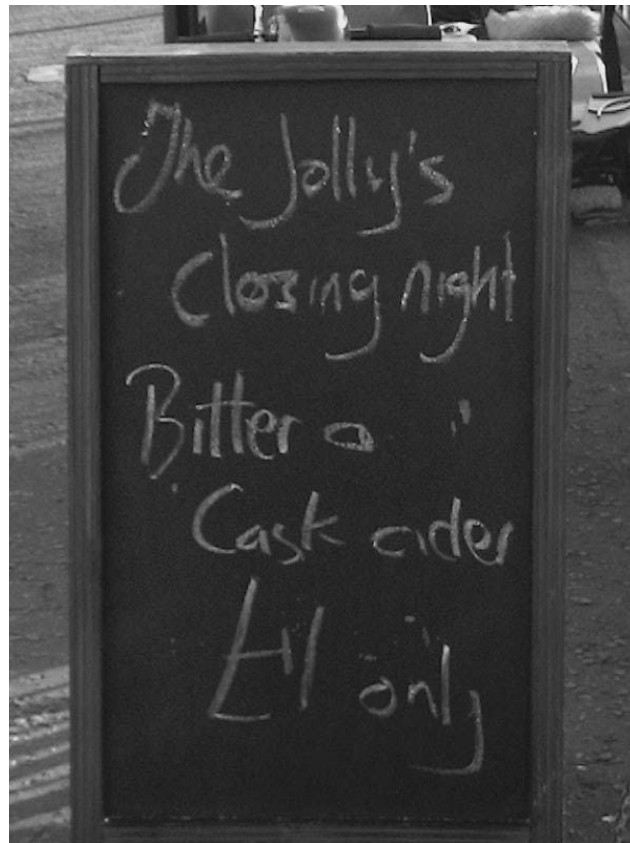 The Jolly's
closing night
Bitter &
Cask cider
£1 only